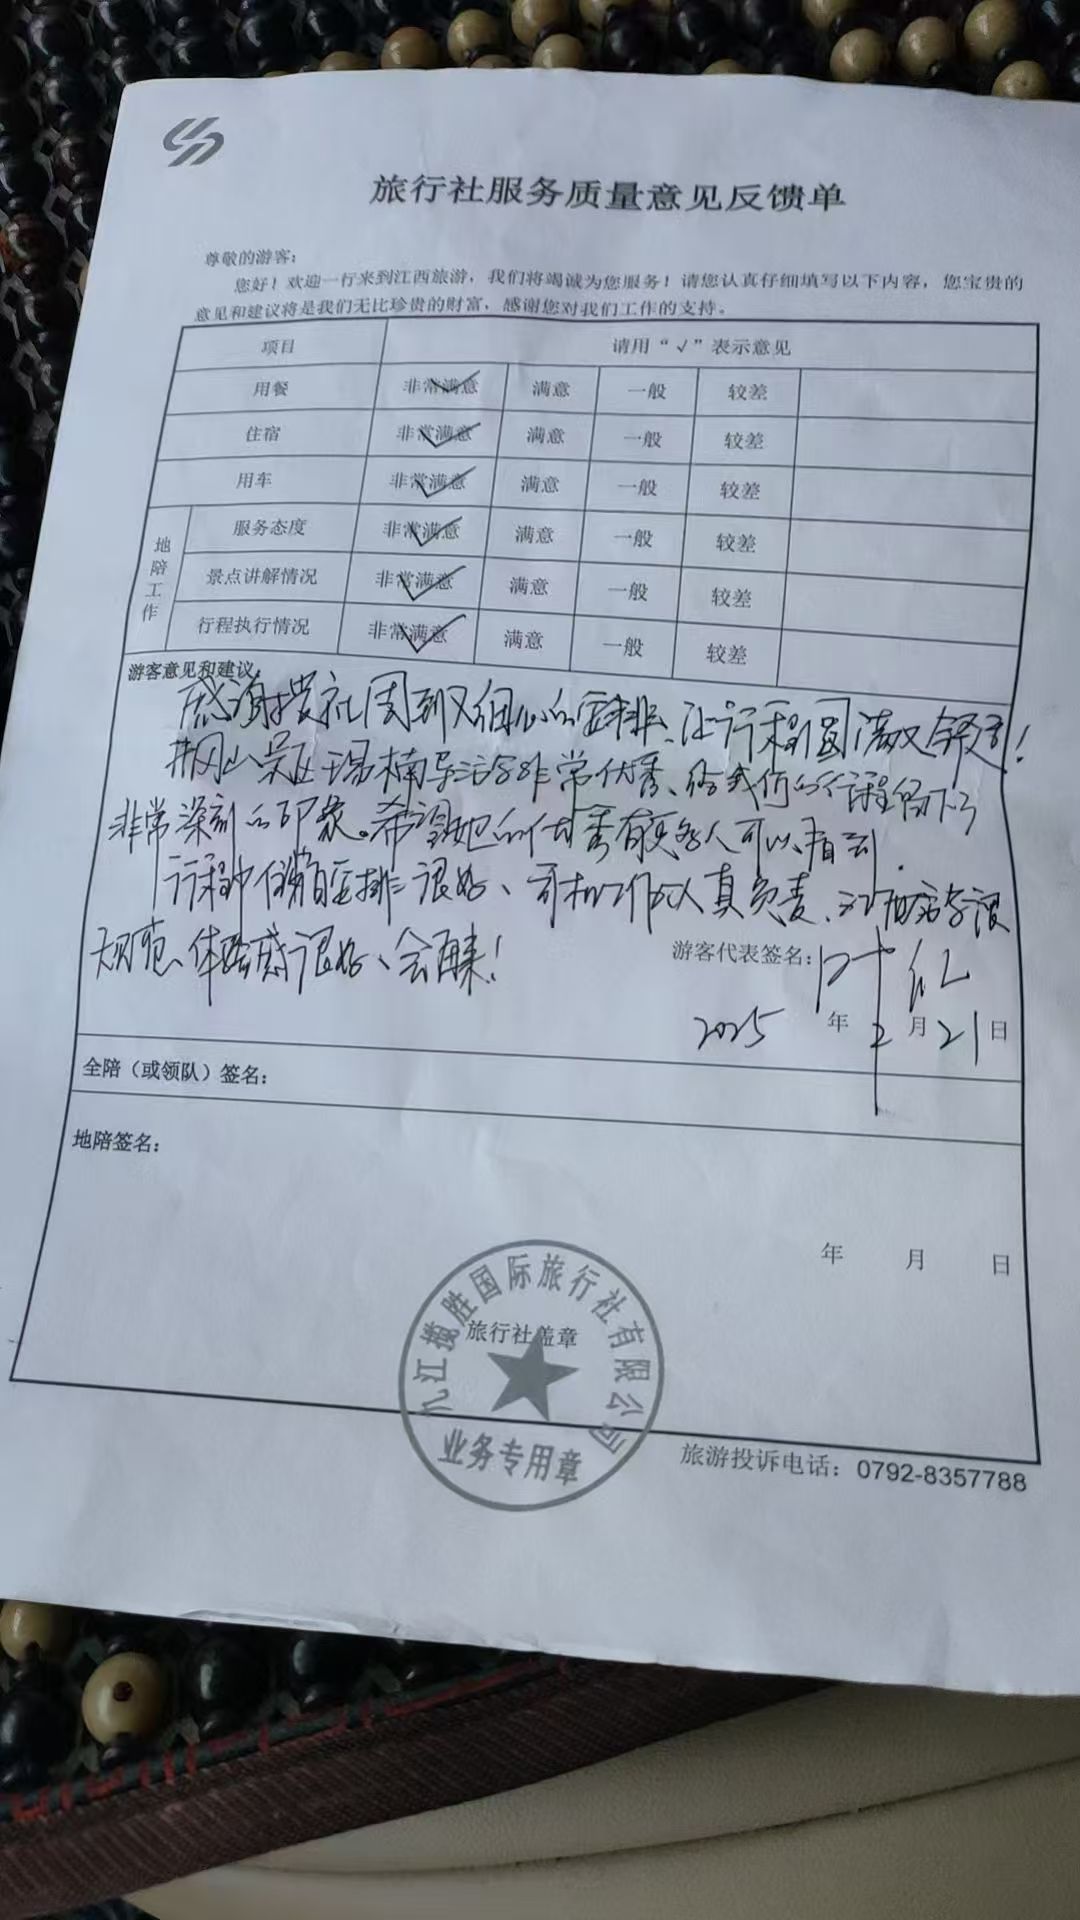 旅行社服务质量意见反馈单
尊敬的游客：
您好！欢迎一行来到江西旅游，我们将竭诚为您服务！请您认真仔细填写以下内容，您宝贵的
意见和建议将是我们无比珍贵的财富，感谢您对我们工作的支持。
项目 请用“√”表示意见
用餐 非常满意 满意 一般 较差
住宿 非常满意 满意 一般 较差
用车 非常满意 满意 一般 较差
地陪工作
服务态度 非常满意 满意 一般 较差
景点讲解情况 非常满意 满意 一般 较差
行程执行情况 非常满意 满意 一般 较差
游客意见和建议：
感谢贵社周到又细心的安排、让行程圆满又舒适！
井冈山 楠导 非常优秀、给我们的行程留下了
非常深刻的印象。希望她的优秀有更多人可以看到.
行程中 安排很好、司机 认真负责、 很
规范、体验感很好、会再来！
游客代表签名：叶红
2025年2月21日
全陪（或领队）签名：
地陪签名：
年 月 日
旅行社盖章
九江揽胜国际旅行社有限公司
业务专用章
旅游投诉电话：0792-8357788